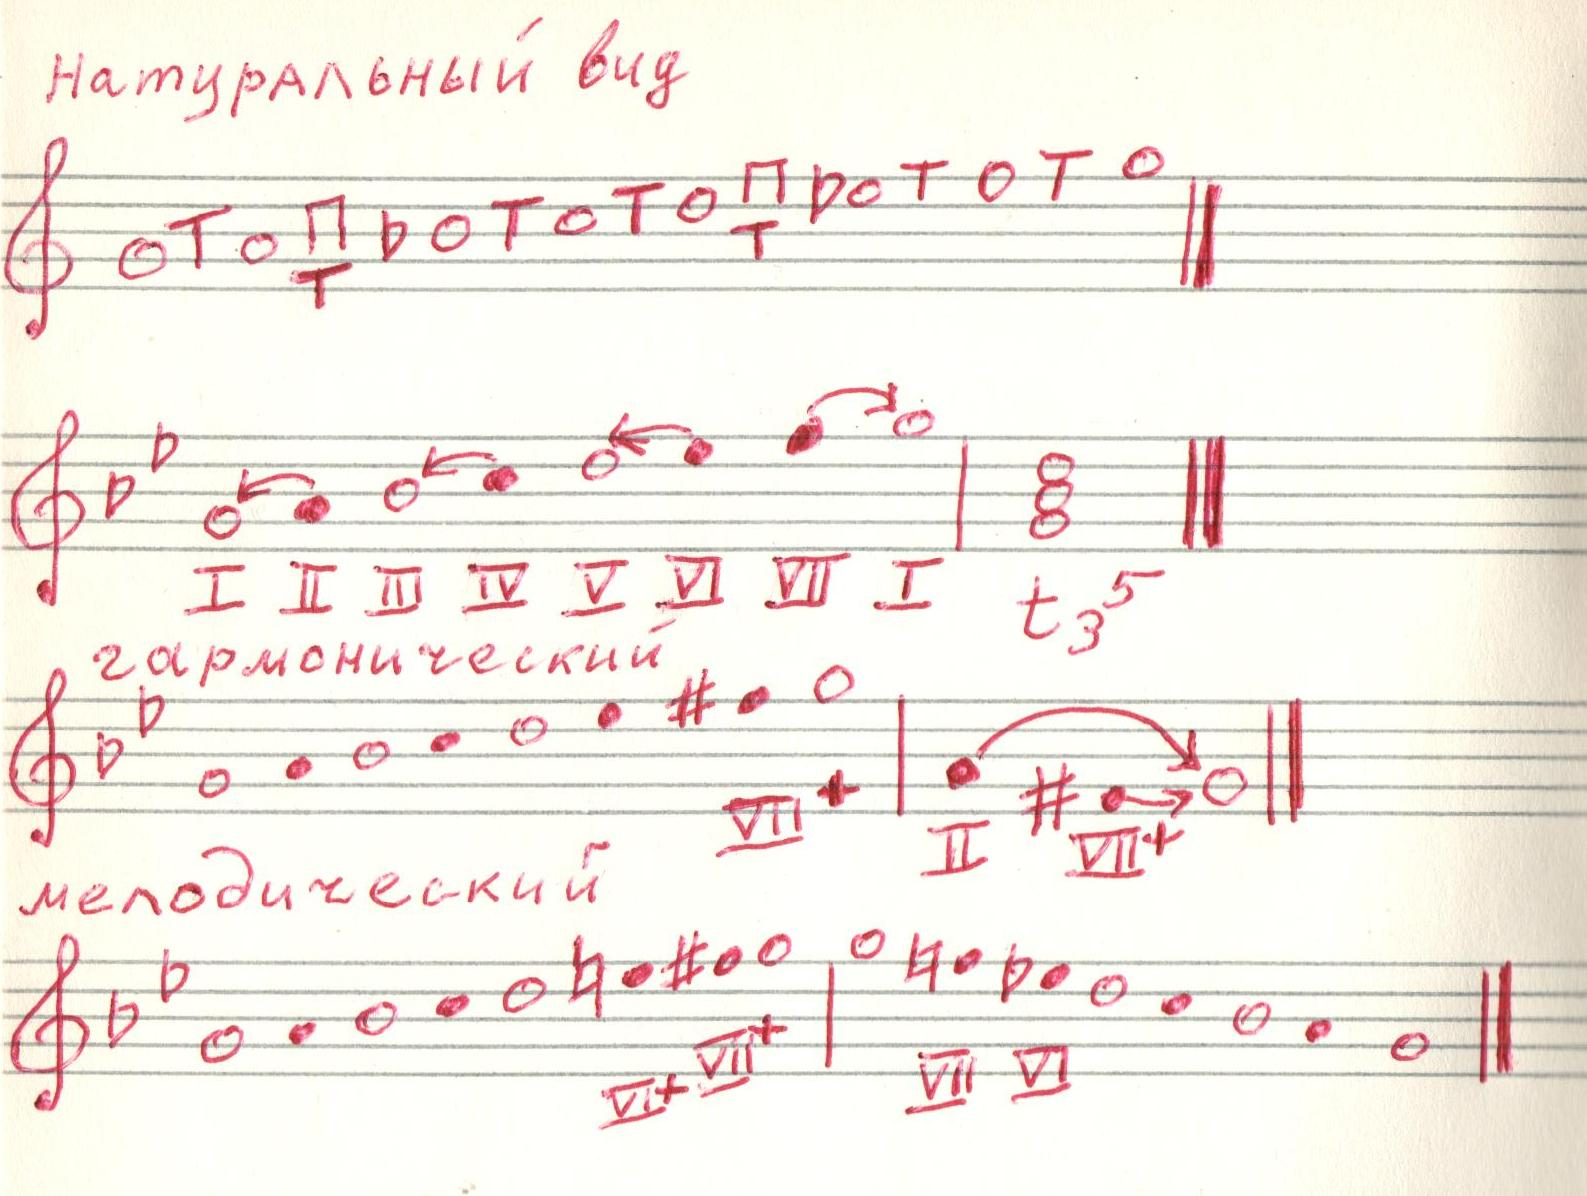 Натуральный вид
Т П Т Т Т П Т Т Т
I II III IV V VI VII I t₃⁵
гармонический
VII+ II VII+
мелодический
VI+ VII+ VII VI